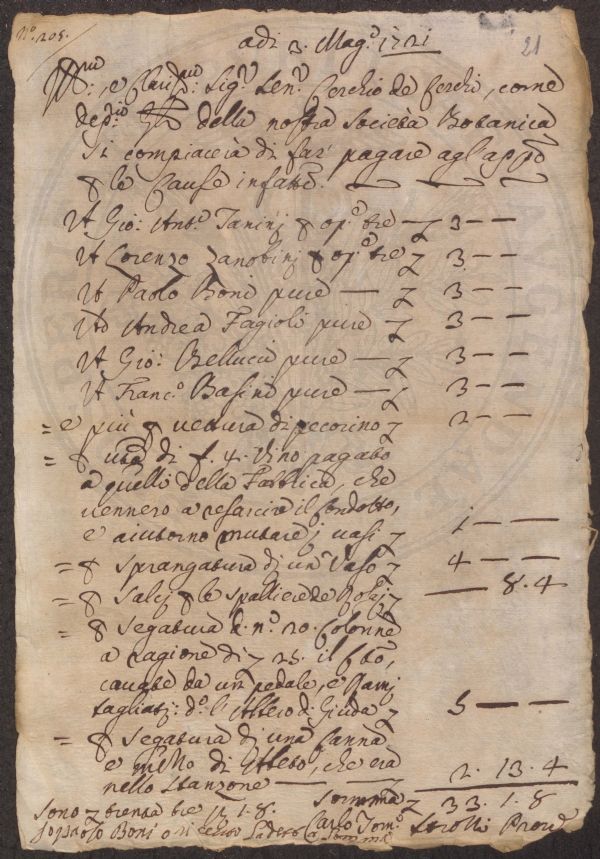 N.º 205.
adi 3. Mag.º 1721
21
Ill.mo, e Clariss.mo Sig.r Sen.r Cerchio de Cerchi, come
dep.rio della nostra Società Botanica
si compiacerà di far' pagare agl'app.
p le Cause infatte.
A Gio: Ant.º Tanini p op.e tre — 3 — —
A Lorenzo Zanobini p op.e tre 3 — —
A Paolo Boni pure — 3 — —
Ad Andrea Fagioli pure 3 — —
A Gio: Bellucci pure — 3 — —
A Franc.º Basini pure — 3 — —
= e più p vettura di pecorino 2 — —
= p di f. 4. Vino pagato
a quelli della Fabbrica, che
vennero a resarcire il condotto,
e aiutorno mutare i vasi 1 — —
= p sprangatura di un' Vaso 4 — —
= p Salci p le spalliere — 8. 4
= p Segatura d. n.º 20. Colonne
a ragione di 25. il
cavate da un' pedale, e rami
tagliati d.º l'Albero di Giuda 5 — —
= p Segatura di una
e mezzo di Albero, che era
nello Stanzone — 2. 13. 4
Sono trenta tre 1. 8. Somma 33. 1. 8
Io Paolo Boni o ricevuto Carlo Tom.º Prov